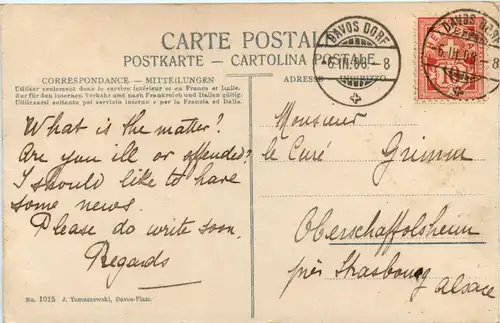 CARTE POSTALE
POSTKARTE - CARTOLINA POSTALE
CORRESPONDANCE - MITTEILUNGEN
ADRESSE - INDIRIZZO
Utilisar seulement dans le service intérieur et en France et Italie.
Nur für den internen Verkehr und nach Frankreich und Italien gültig.
Utilizzarsi soltanto pel servizio interno e per la Francia ed Italia.
DAVOS DORF
6.III.08.-8
DAVOS DORF
6.III.08.-8
10
What is the matter?
Are you ill or offended?
I should like to have
some news.
Please do write soon.
Regards
Monsieur
le Curé Grimm
Oberschaffolsheim
près Strasbourg
Alsace
No. 1915 J. Tomaszewski, Davos-Platz.